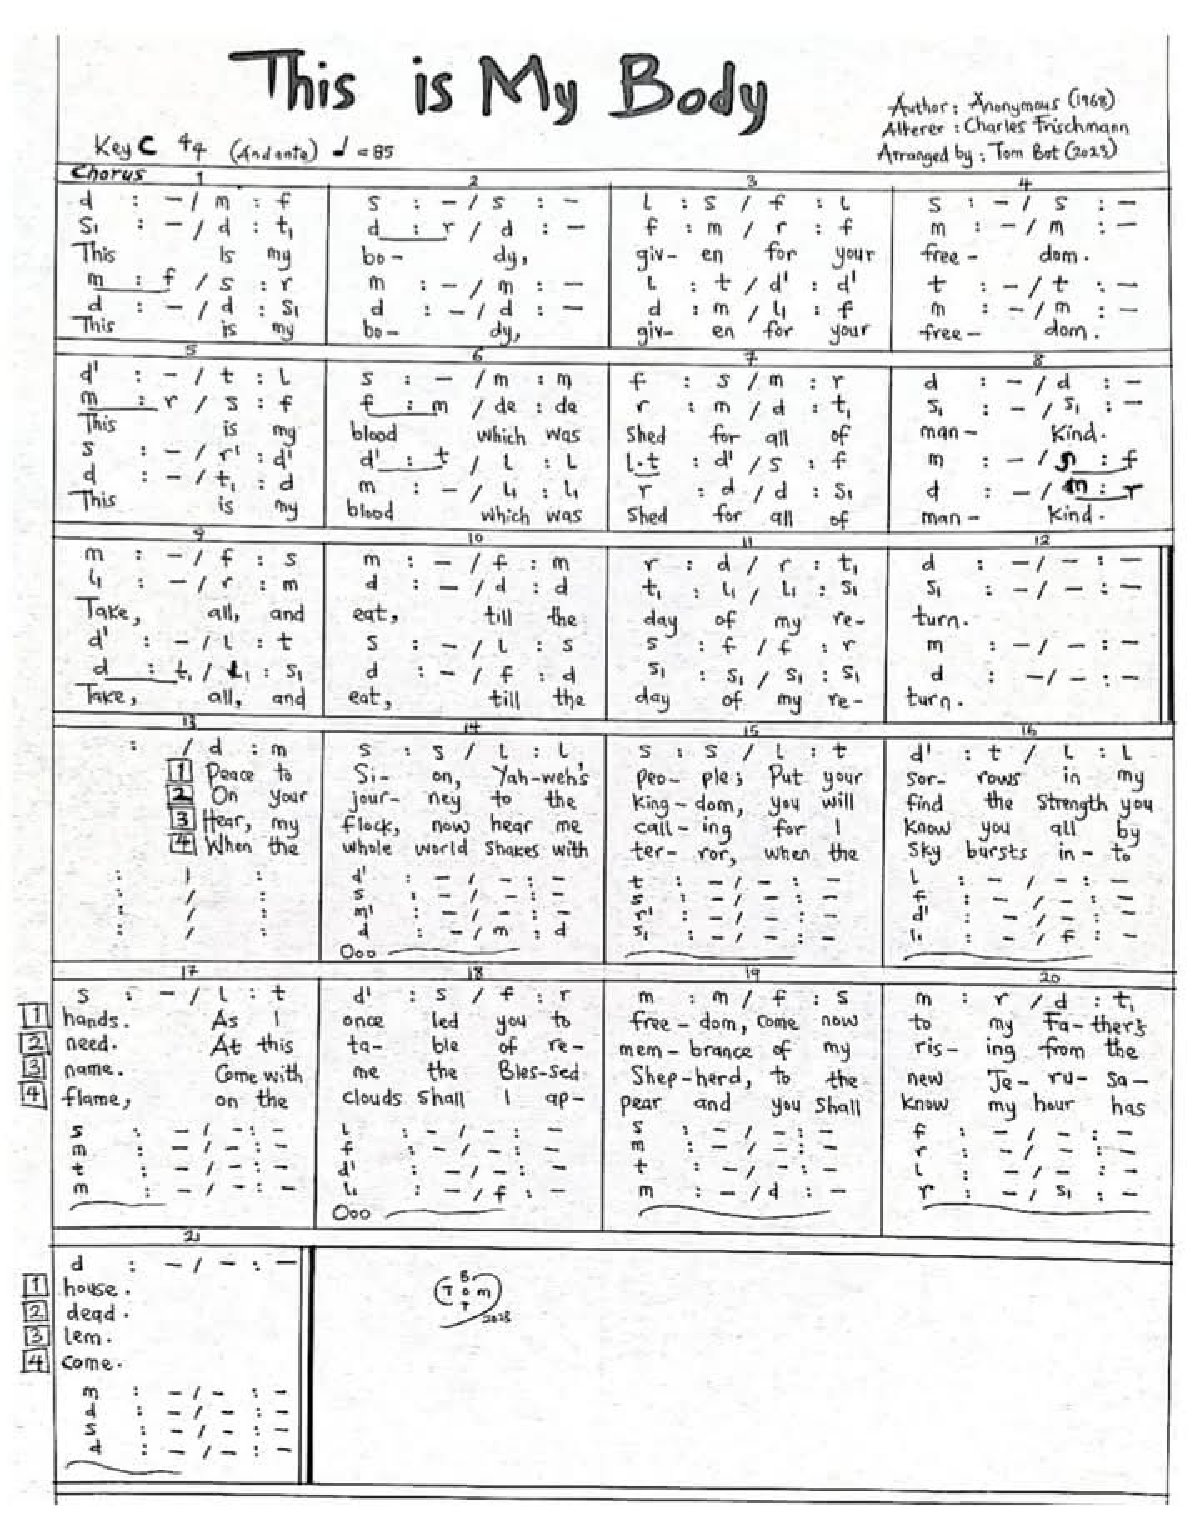 This is My Body
Author: Anonymous (1968)
Alterer: Charles Frischmann
Arranged by: Tom Bot (2023)
Key C 4/4 (Andante) ♩ = 85
Chorus 1 2 3 4
d : - / m : f s : - / s : - l : s / f : l s : - / s : -
s₁ : - / d : t₁ d : r / d : - f : m / r : f m : - / m : -
This is my bo- dy, giv- en for your free- dom.
m : f / s : r m : - / m : - l : t / d' : d' t : - / t : -
d : - / d : s₁ d : - / d : - d : m / l₁ : f m : - / m : -
This is my bo- dy, giv- en for your free- dom.
5 6 7 8
d' : - / t : l s : - / m : m f : s / m : r d : - / d : -
m : r / s : f f : m / de : de r : m / d : t₁ s₁ : - / s₁ : -
This is my blood which was shed for all of man- kind.
s : - / r' : d' d' : t / l : l l.t : d' / s : f m : - / s : f
d : - / t₁ : d m : - / l₁ : l₁ r : d / d : s₁ d : - / m : r
This is my blood which was shed for all of man- kind.
9 10 11 12
m : - / f : s m : - / f : m r : d / r : t₁ d : - / - : -
l₁ : - / r : m d : - / d : d t₁ : l₁ / l₁ : s₁ s₁ : - / - : -
Take, all, and eat, till the day of my re- turn.
d' : - / l : t s : - / l : s s : f / f : r m : - / - : -
d : t₁ / l₁ : s₁ d : - / f : d s₁ : s₁ / s₁ : s₁ d : - / - : -
Take, all, and eat, till the day of my re- turn.
13 14 15 16
: / d : m s : s / l : l s : s / l : t d' : t / l : l
1 Peace to Si- on, Yah-weh's peo- ple; Put your sor- rows in my
2 On your jour- ney to the king- dom, you will find the strength you
3 Hear, my flock, now hear me call- ing for I know you all by
4 When the whole world shakes with ter- ror, when the sky bursts in- to
: / : d' : - / - : - t : - / - : - l : - / - : -
: / : s : - / - : - s : - / - : - f : - / - : -
: / : m' : - / - : - r' : - / - : - d' : - / - : -
: / : d : - / m : d s₁ : - / - : - l₁ : - / f : -
Ooo
17 18 19 20
s : - / l : t d' : s / f : r m : m / f : s m : r / d : t₁
1 hands. As I once led you to free- dom, come now to my Fa-ther's
2 need. At this ta- ble of re- mem- brance of my ris- ing from the
3 name. Come with me the Bles-sed Shep-herd, to the new Je- ru- sa-
4 flame, on the clouds shall I ap- pear and you shall know my hour has
s : - / - : - l : - / - : - s : - / - : - f : - / - : -
m : - / - : - f : - / - : - m : - / - : - r : - / - : -
t : - / - : - d' : - / - : - t : - / - : - l : - / - : -
m : - / - : - l₁ : - / f : - m : - / d : - r : - / s₁ : -
Ooo
21
d : - / - : -
1 house.
2 dead.
3 lem.
4 come.
m : - / - : -
d : - / - : -
s : - / - : -
d : - / - : -
B
T o m
T
2023